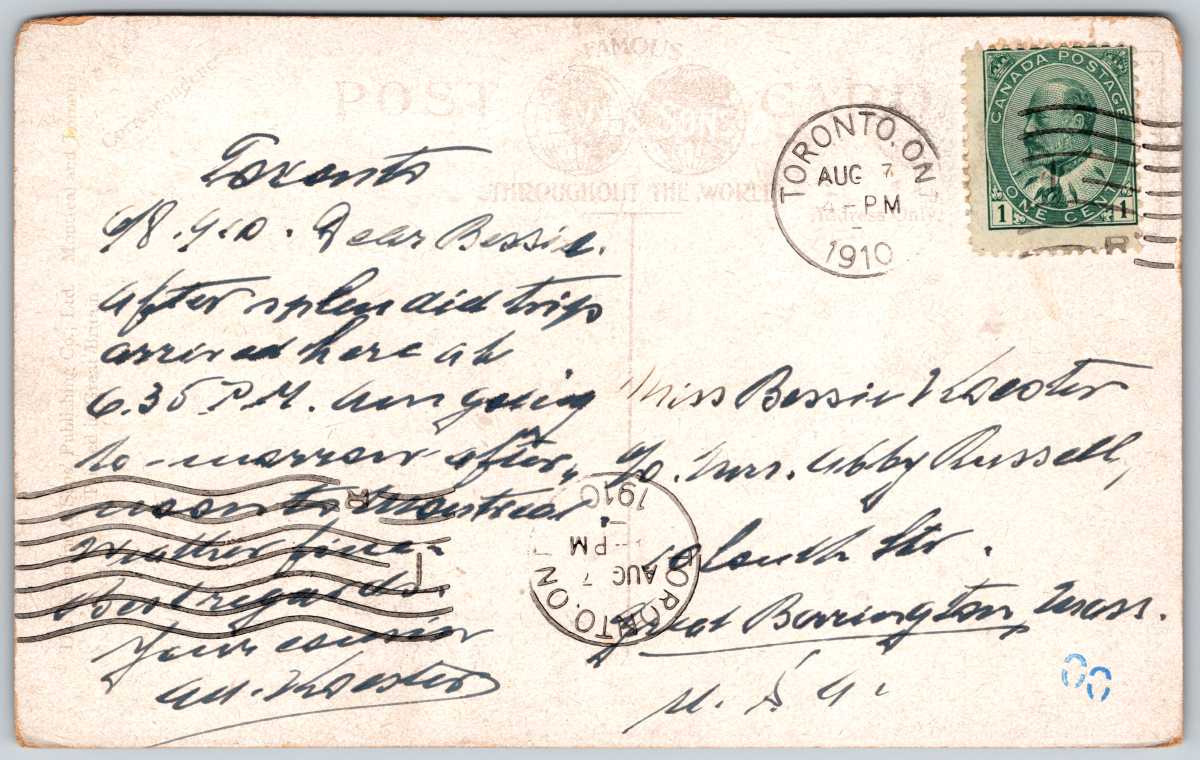 Correspondence
FAMOUS
POST CARD
THROUGHOUT THE WORLD
Address Only.
TORONTO, ONT
AUG 7
4-PM
1910
CANADA POSTAGE
1 ONE CENT 1
R
Toronto
6/8.910. Dear Bessie.
After splendid trip
arrived here at
6.35 P.M. Am going
to-morrow after,,
noon to Montreal.
Weather fine.
Best regards.
Your cousin
Ad. Koester
Miss Bessie Koester
c/o. Mrs. Abby Russell,
South Str.
Great Barrington, Mass.
U. S. A.
TORONTO, ON
AUG 7
-PM
1910
R
Publishing Co., Ltd Montreal and